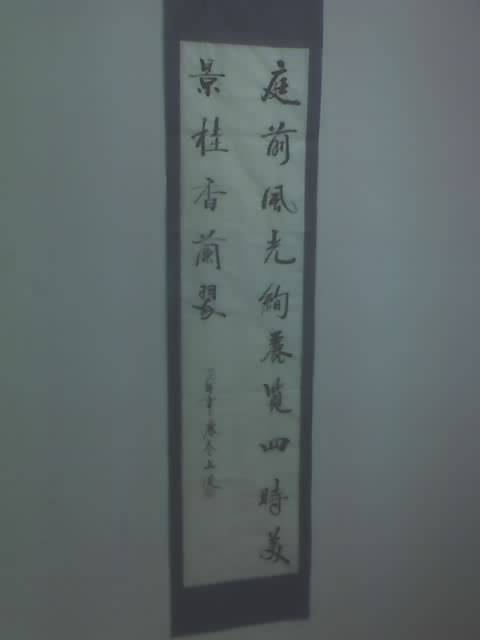 庭前風光絢麗覽四時美
景桂香蘭翠